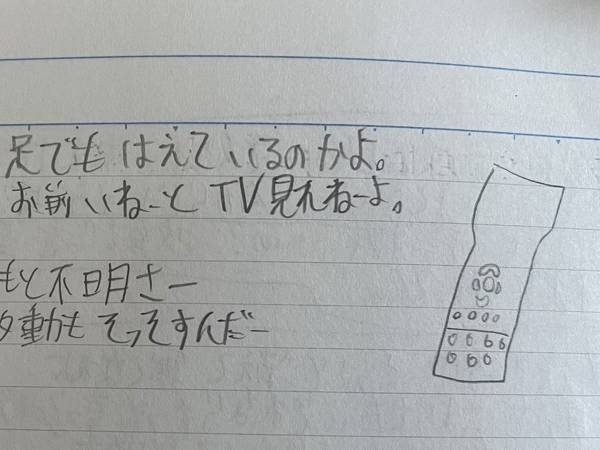 足でもはえているのかよ。
お前いねーとTV見れねーよ。
もと不明さー
動かもそっそすんだー